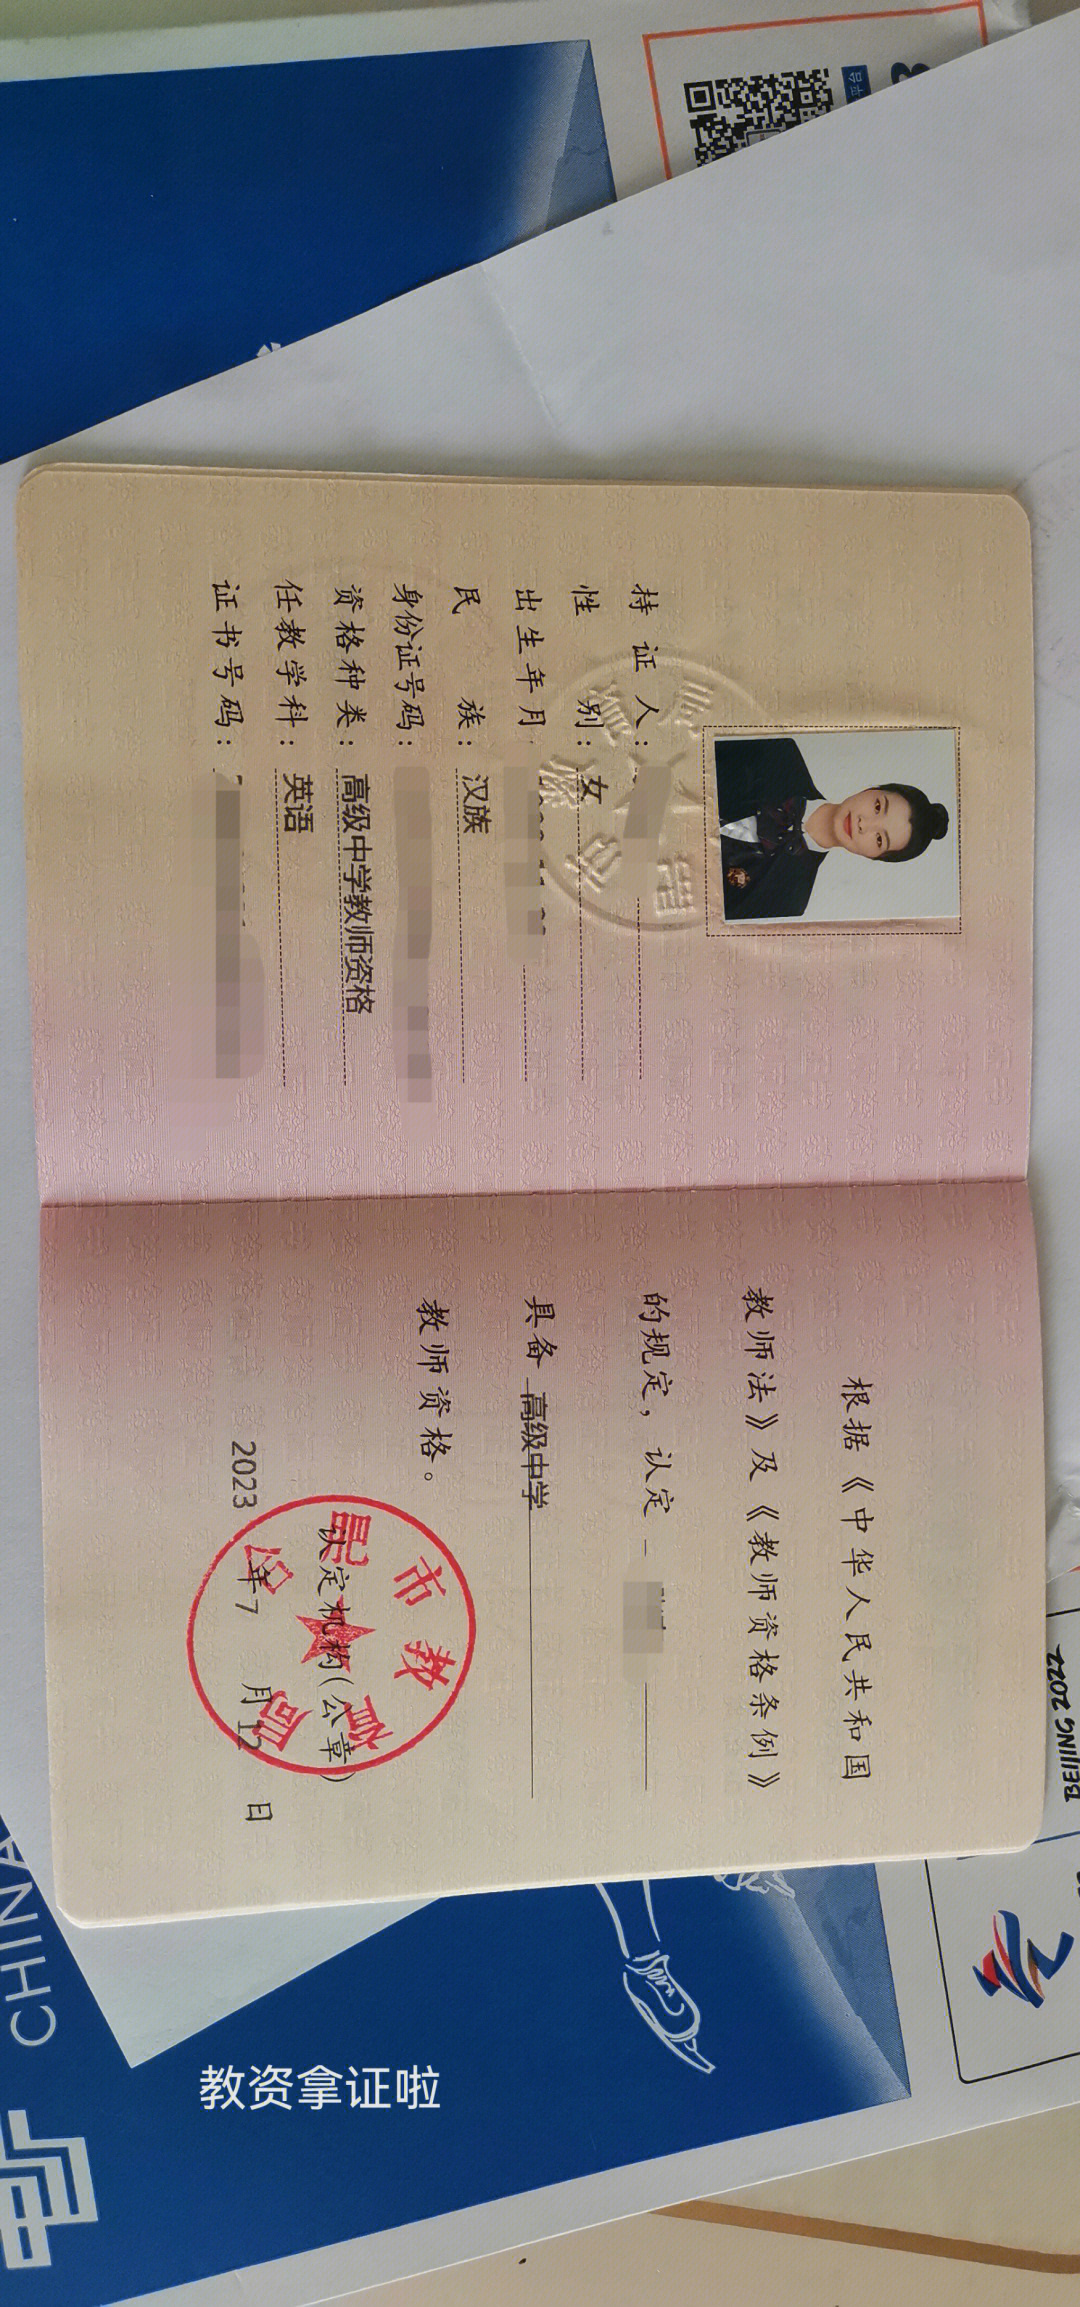 持证人：
性别：女
出生年月
民族：汉族
身份证号码：
资格种类：高级中学教师资格
任教学科：英语
证书号码：
根据《中华人民共和国
教师法》及《教师资格条例》
的规定，认定
具备 高级中学
教师资格。
认定机构(公章)
2023年7月12日
市教
BEIJING 2022
CHINA
教资拿证啦